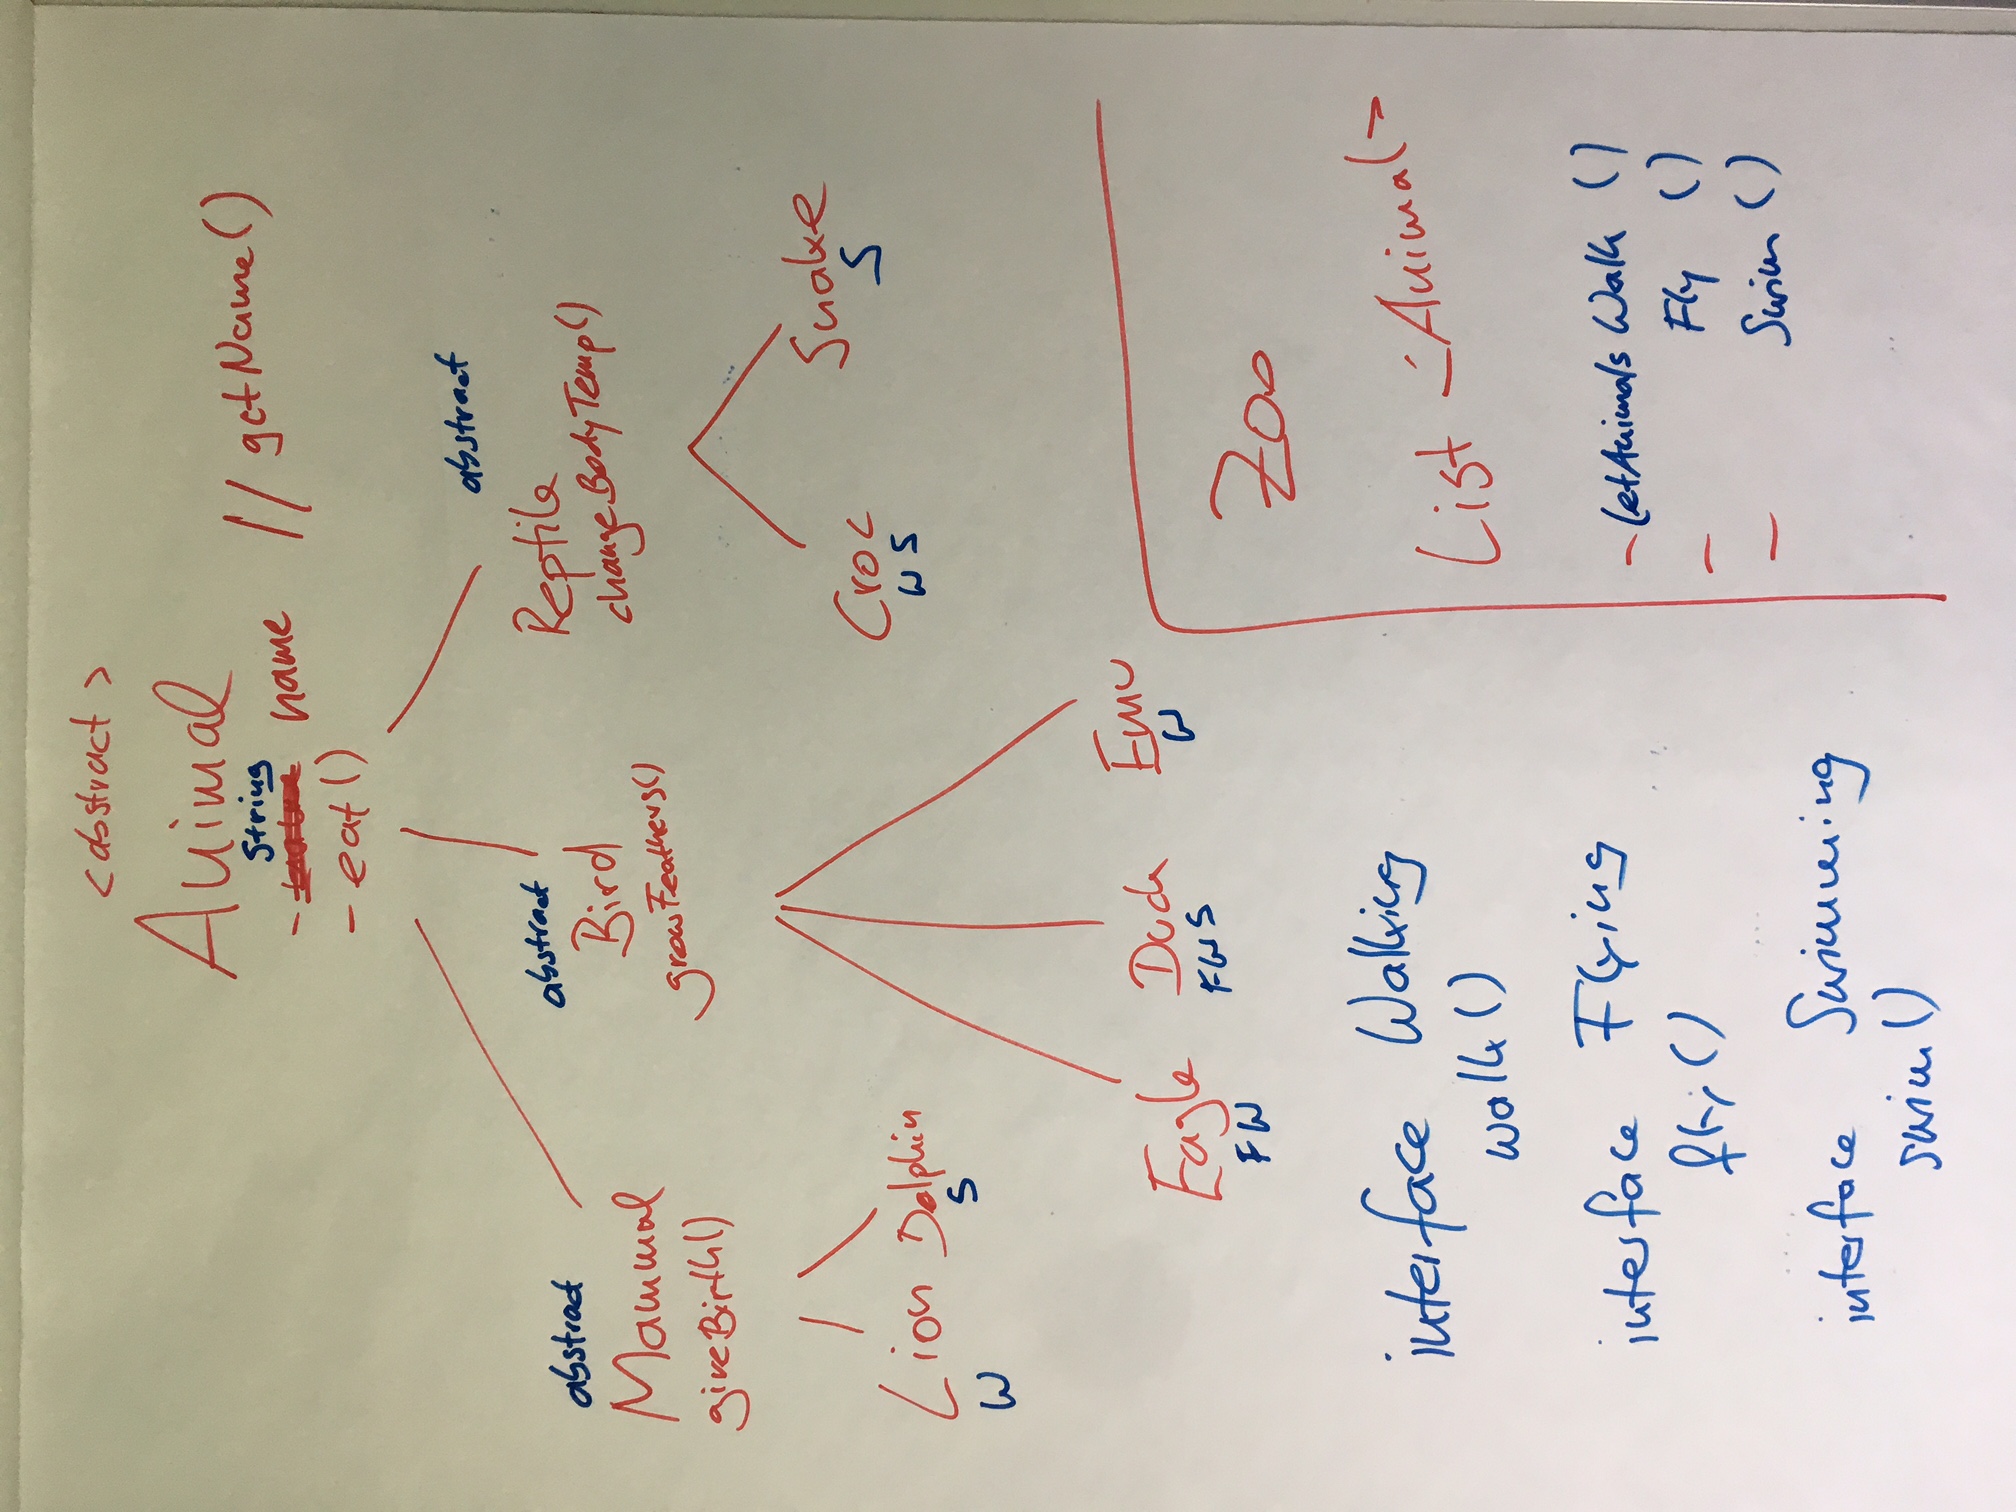 <abstract>
Animal
String
- name // getName()
- eat()
abstract
Mammal
giveBirth()
abstract
Bird
growFeathers()
abstract
Reptile
changeBodyTemp()
Lion
W
Dolphin
S
Croc
W S
Snake
S
Eagle
FW
Duck
FWS
Emu
W
interface Walking
walk()
interface Flying
fly()
interface Swimming
swim()
Zoo
List <Animal>
- letAnimals Walk ()
- Fly ()
- Swim ()